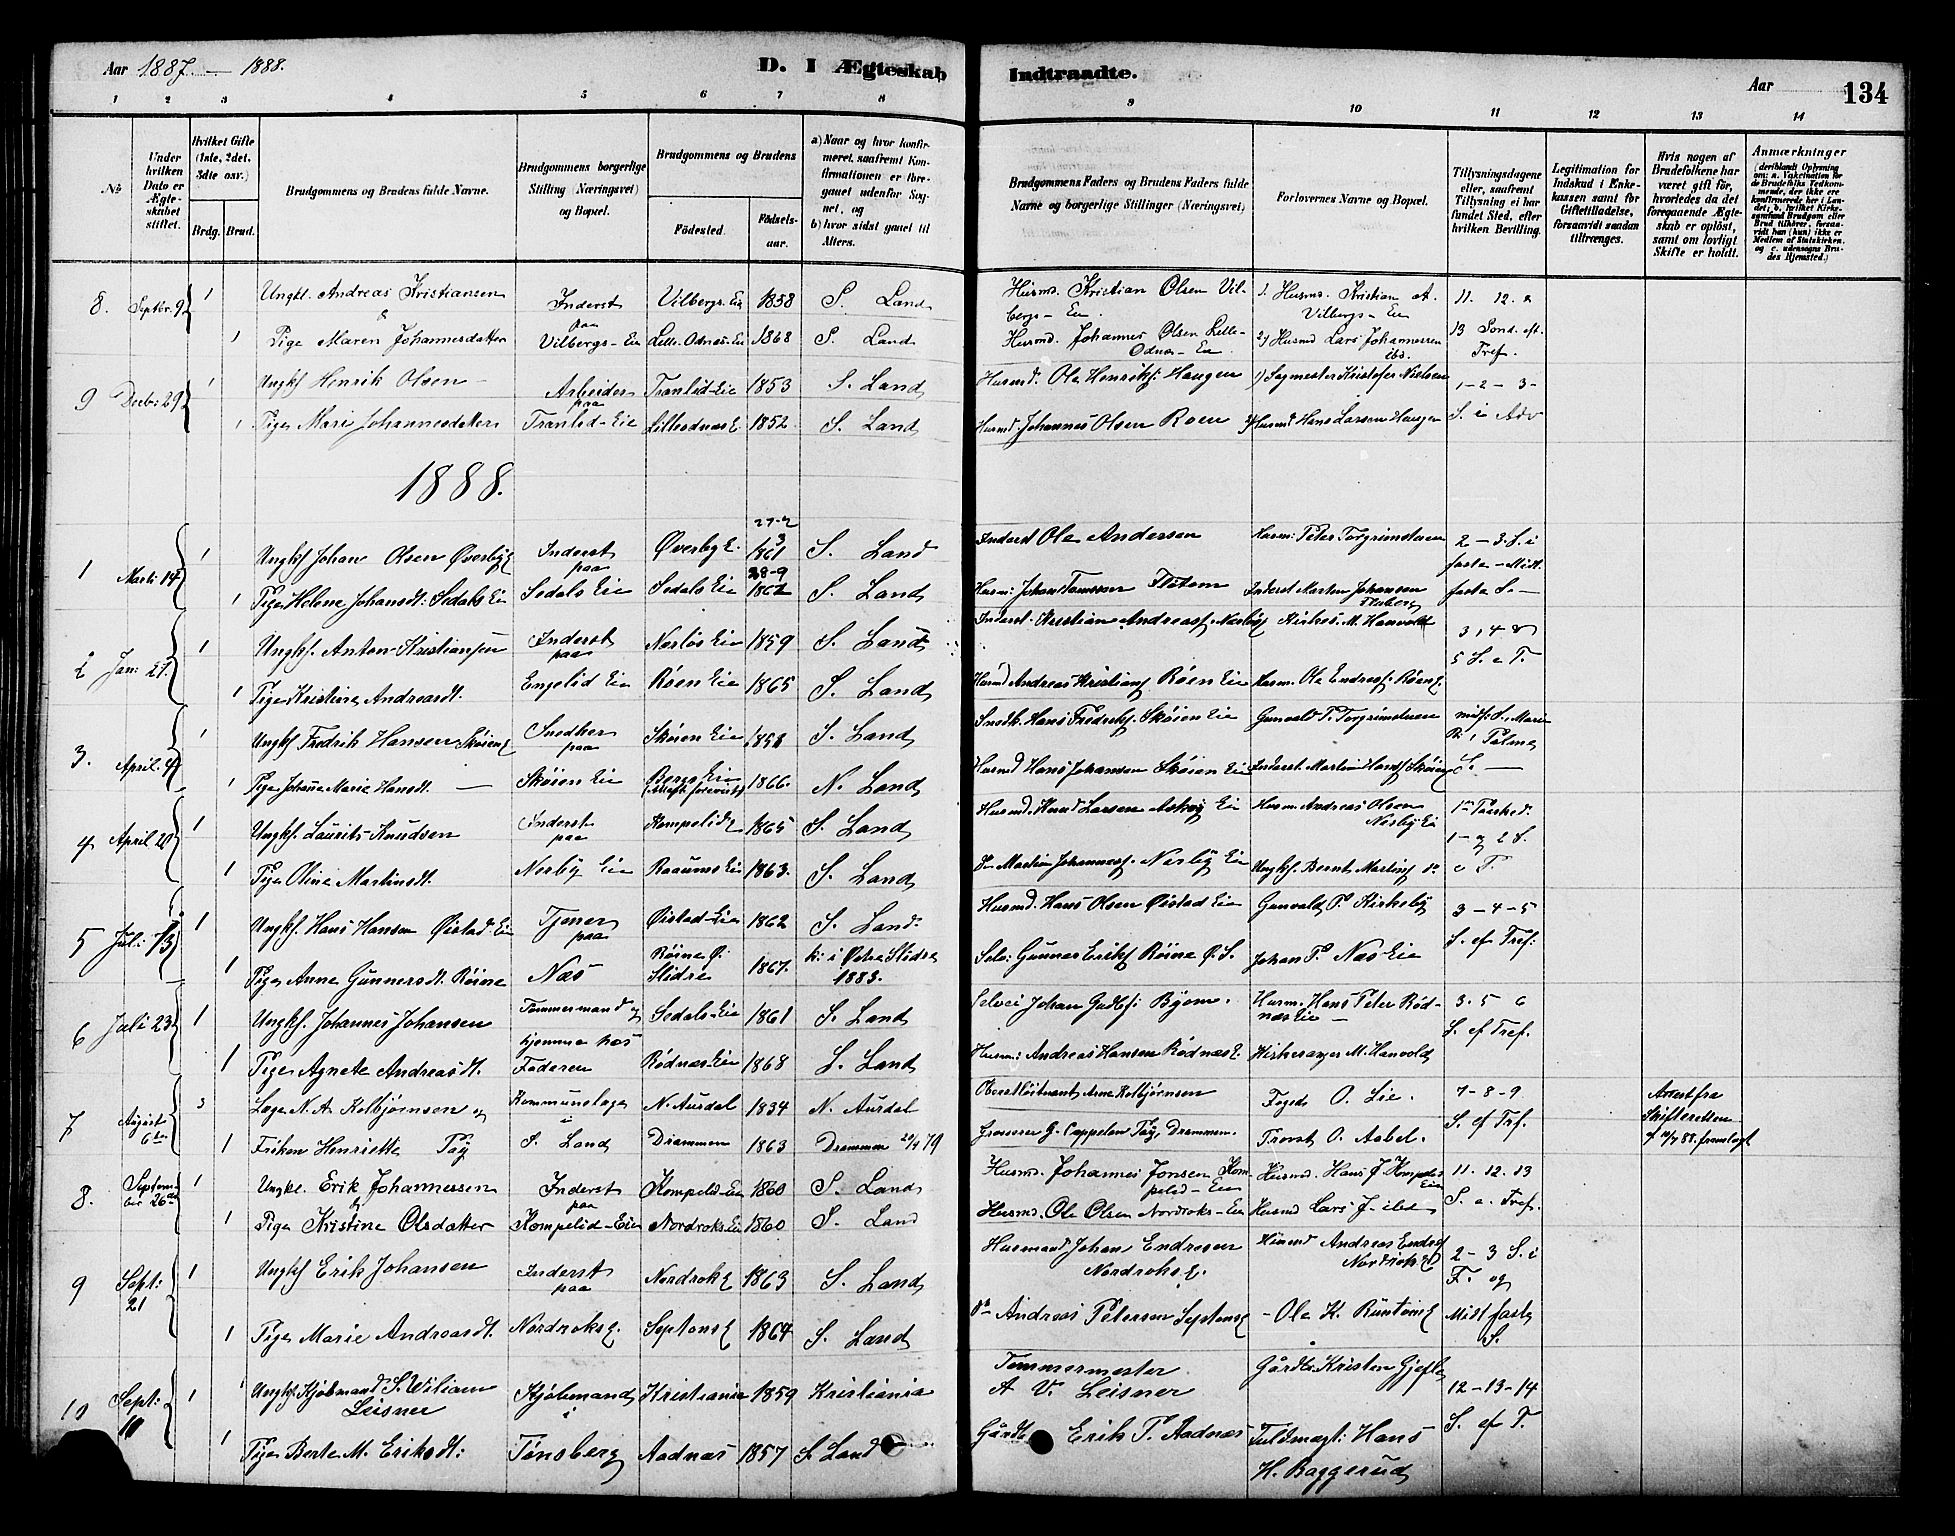 Aar 1887. — 1888.
D. I Ægteskab Indtraadte.
Aar
134
1 2 3 4 5 6 7 8 9 10 11 12 13 14
№
Under hvilken Dato er Ægteskabet stiftet.
Hvilket Gifte (1ste, 2det, 3die osv.)
Brdg. Brud.
Brudgommens og Brudens fulde Navne.
Brudgommens borgerlige Stilling (Næringsvei) og Bopæl.
Brudgommens og Brudens
Fødested.
Fødselsaar.
a) Naar og hvor konfirmeret, saafremt Konfirmationen er foregaaet udenfor Sognet, og
b) hvor sidst gaaet til Alters.
Brudgommens Faders og Brudens Faders fulde Navne og borgerlige Stillinger (Næringsvei)
Forlovernes Navne og Bopæl.
Tillysningsdagene eller, saafremt Tillysning ei har fundet Sted, efter hvilken Bevilling.
Legitimation for Indskud i Enkekassen samt for Giftetilladelse, forsaavidt saadan tiltrænges.
Hvis nogen af Brudefolkene har været gift før, hvorledes da det foregaaende Ægteskab er opløst, samt om lovligt Skifte er holdt.
Anmærkninger
8. Septbr. 9 1 Ungkl. Andreas Kristiansen Inderst Vilbergs-Eie 1838 S. Land Husmd. Kristian Olsen Vilbergs-Eie. 1. Husmd. Kristian A. Vilbergs-Eie 11. 12. &
1 Pige Maren Johannesdatter paa Vilbergs-Eie Lille-Odnæs-Eie 1868 S. Land Husmd. Johannes Olsen Lille-Odnæs-Eie. 2) Husmd Lars Johannessen ibd. 13 Sond. eft. Tref.
9 Decbr 29 1 Ungkf Henrik Olsen Arbeider Tranlid-Eie 1853 S. Land Husmd. Ole Henriksf: Haugen 1) Sagmester Kristofer Nielsen 1-2-3-
1 Pige Mari Johannesdatter paa Tranlid-Eie Lilleodnæs E. 1852. S. Land Husmd. Johannes Olsen Roen 2) Husmd Hans Larsen Haugen S. i Adv
1888.
1 Marts 14 1 Ungkf Johan Olsen Øverby E Inderst Øverby E. 27-2 1861 3 S. Land Inderst Ole Andersen Husm: Peter Torgrimsen 2-3. S. i
1 Pige Helene Johansdt: Sedals Eie paa Sedals Eie Sedals Eie 28-9 1862 S. Land Husm: Johan Flatom Inderst Morten Johansen faste-Midt. faste S. —
2 Jan: 27. 1 Ungkf. Anton Kristiansen Inderst 1859 S. Land Inderst. Kristian Andreasf. Nærby Kirkes. M. Hanvold 3, 4 &
1 Pige Kristine Andreasdt. paa Engelid Eie Røen Eie 1865 S. Land Husmd Andreas Kristiansf Røen Eie Husm. Ole Endresf: Røen E. 5 S. e T.
3. April. 4 1 Ungkf Fredrik Hansen Skøien E Snedker Skøien Eie 1858 S. Land Snedk. Hans Fredriksf. Skøien Eie Gunvald P. Torgrimsen midf: S. Marie B. 1 Palme
1 Pige Johane Marie Hansdt. — paa Skøien Eie Bergs Eie 1866. N. Land Husmd Hans Johansen Skøien Eie Inderst Martin Hansf Skøien S. —
4 April 20 1 Ungkf. Laurits Knudsen Inderst Kompelid E 1865 S. Land Husmd. Knud Larsen Eie Husm. Andreas Olsen Nærby Eie 1ste Paasked.
1 Pige Oline Martinsdt. paa Nærby Eie Raaums Eie 1863. S. Land Martin Johannesf. Nærby Eie Ungkf. Bernt Martinsf do 1- og 2 S. e T.
5 Juli 13 1 Ungkf. Hans Hansen Øistad-Eie Tjener Øistad-Eie 1862 S. Land. Husmd. Hans Olsen Øistad Eie Gunvald P. Kirkeby 3-4-5
1 Pige Anne Gunnersdt. Røine paa Næs Røine Ø: Slidre 1867. k: i Østre Slidre 1883. Selv: Gunner Eriksf Røine Ø. S. Johan P. Næs Eie S. ef Tref:
6 Juli 23 1 Ungkf. Johannes Johansen Tømmermand og Sedals-Eie 1861 S. Land Selvei Johan Gudbf: Bjone. Husm. Hans Peter Rødnæs Eie — 3. 5 6
1 Pige Agnete Andreasdt. hjemme hos Faderen Rødnæs-Eie 1868 S. Land Husm: Andreas Hansen Rødnæs E. Kirkesanger M. Hanvold S. ef Tref.
7 August 6te 3 Læge N. A. Kolbjørnsen og Kommunelæge N. Aurdal 1834 N. Aurdal Oberstløitnant Arne Kolbjørnsen Foged O. Lie. 7-8-9 Attest fra Skifteretten
1 Frøken Henriette Tøy i S. Land Drammen 1863 Drammen 20/4 79 Grosserer G. Cappelen Tøy, Drammen. Provst O. Aabel. S. ef Trf. af 10/7 88. fremlagt
8. September 26de 1 Ungkl. Erik Johannessen & Inderst Kompelid-Eie 1860 S. Land Husmd. Johannes Jonsen Kompelid-Eie Husmd. Hans J. Kompelid Eie 11. 12. 13
1 Pige Kristine Olsdatter paa Kompelid-Eie Nordroks-Eie 1860 S. Land Husmd. Ole Olsen Nordroks-Eie Husmd Lars J-ibd S. e. Tref.
9 Sept: 21 1 Ungkf Erik Johansen Inderst Nordroks E 1863 S. Land Husmand Johan Endresen Nordroks E. Husmd Andreas Endresf Nordroks E 2-3 S. i F. og
1 Pige Marie Andreasdt. paa Nordroks E. Septons E 1864 S. Land do Andreas Petersen Septons E - Ole K. Midtfaste S.
10 Sept: 10 1 Ungkf. Kjøbmand S. Wiliam Leisner Kjøbmand Kristiania 1859 Kristiania Tømmermester A V. Leisner Gårdbr. Kristen Gjefle 12-13-14
1 Pige Berte M. Eriksdt: i Tønsberg Aadnæs 1857 S. Land Gårdb. Erik P. Aadnæs Fuldmægt: Hans H. Baggerud S. ef T.